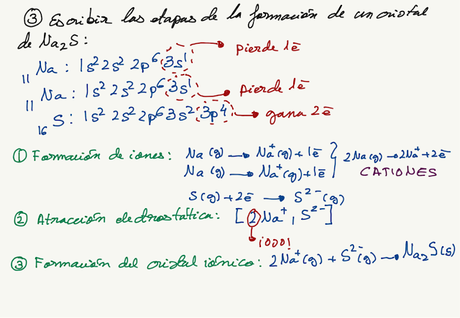 ③ Escribir las etapas de la formación de un cristal
de Na₂S:
₁₁Na: 1s² 2s² 2p⁶ 3s¹ → pierde 1ē
₁₁Na: 1s² 2s² 2p⁶ 3s¹ → pierde 1ē
₁₆S: 1s² 2s² 2p⁶ 3s² 3p⁴ → gana 2ē
① Formación de iones: Na (g) → Na⁺(g) + 1ē } 2Na(g) → 2Na⁺ + 2ē
Na (g) → Na⁺(g) + 1ē CATIONES
S(g) + 2ē → S²⁻(g)
② Atracción electrostática: [2Na⁺, S²⁻]
¡OJO!
③ Formación del cristal iónico: 2Na⁺(g) + S²⁻(g) → Na₂S(s)